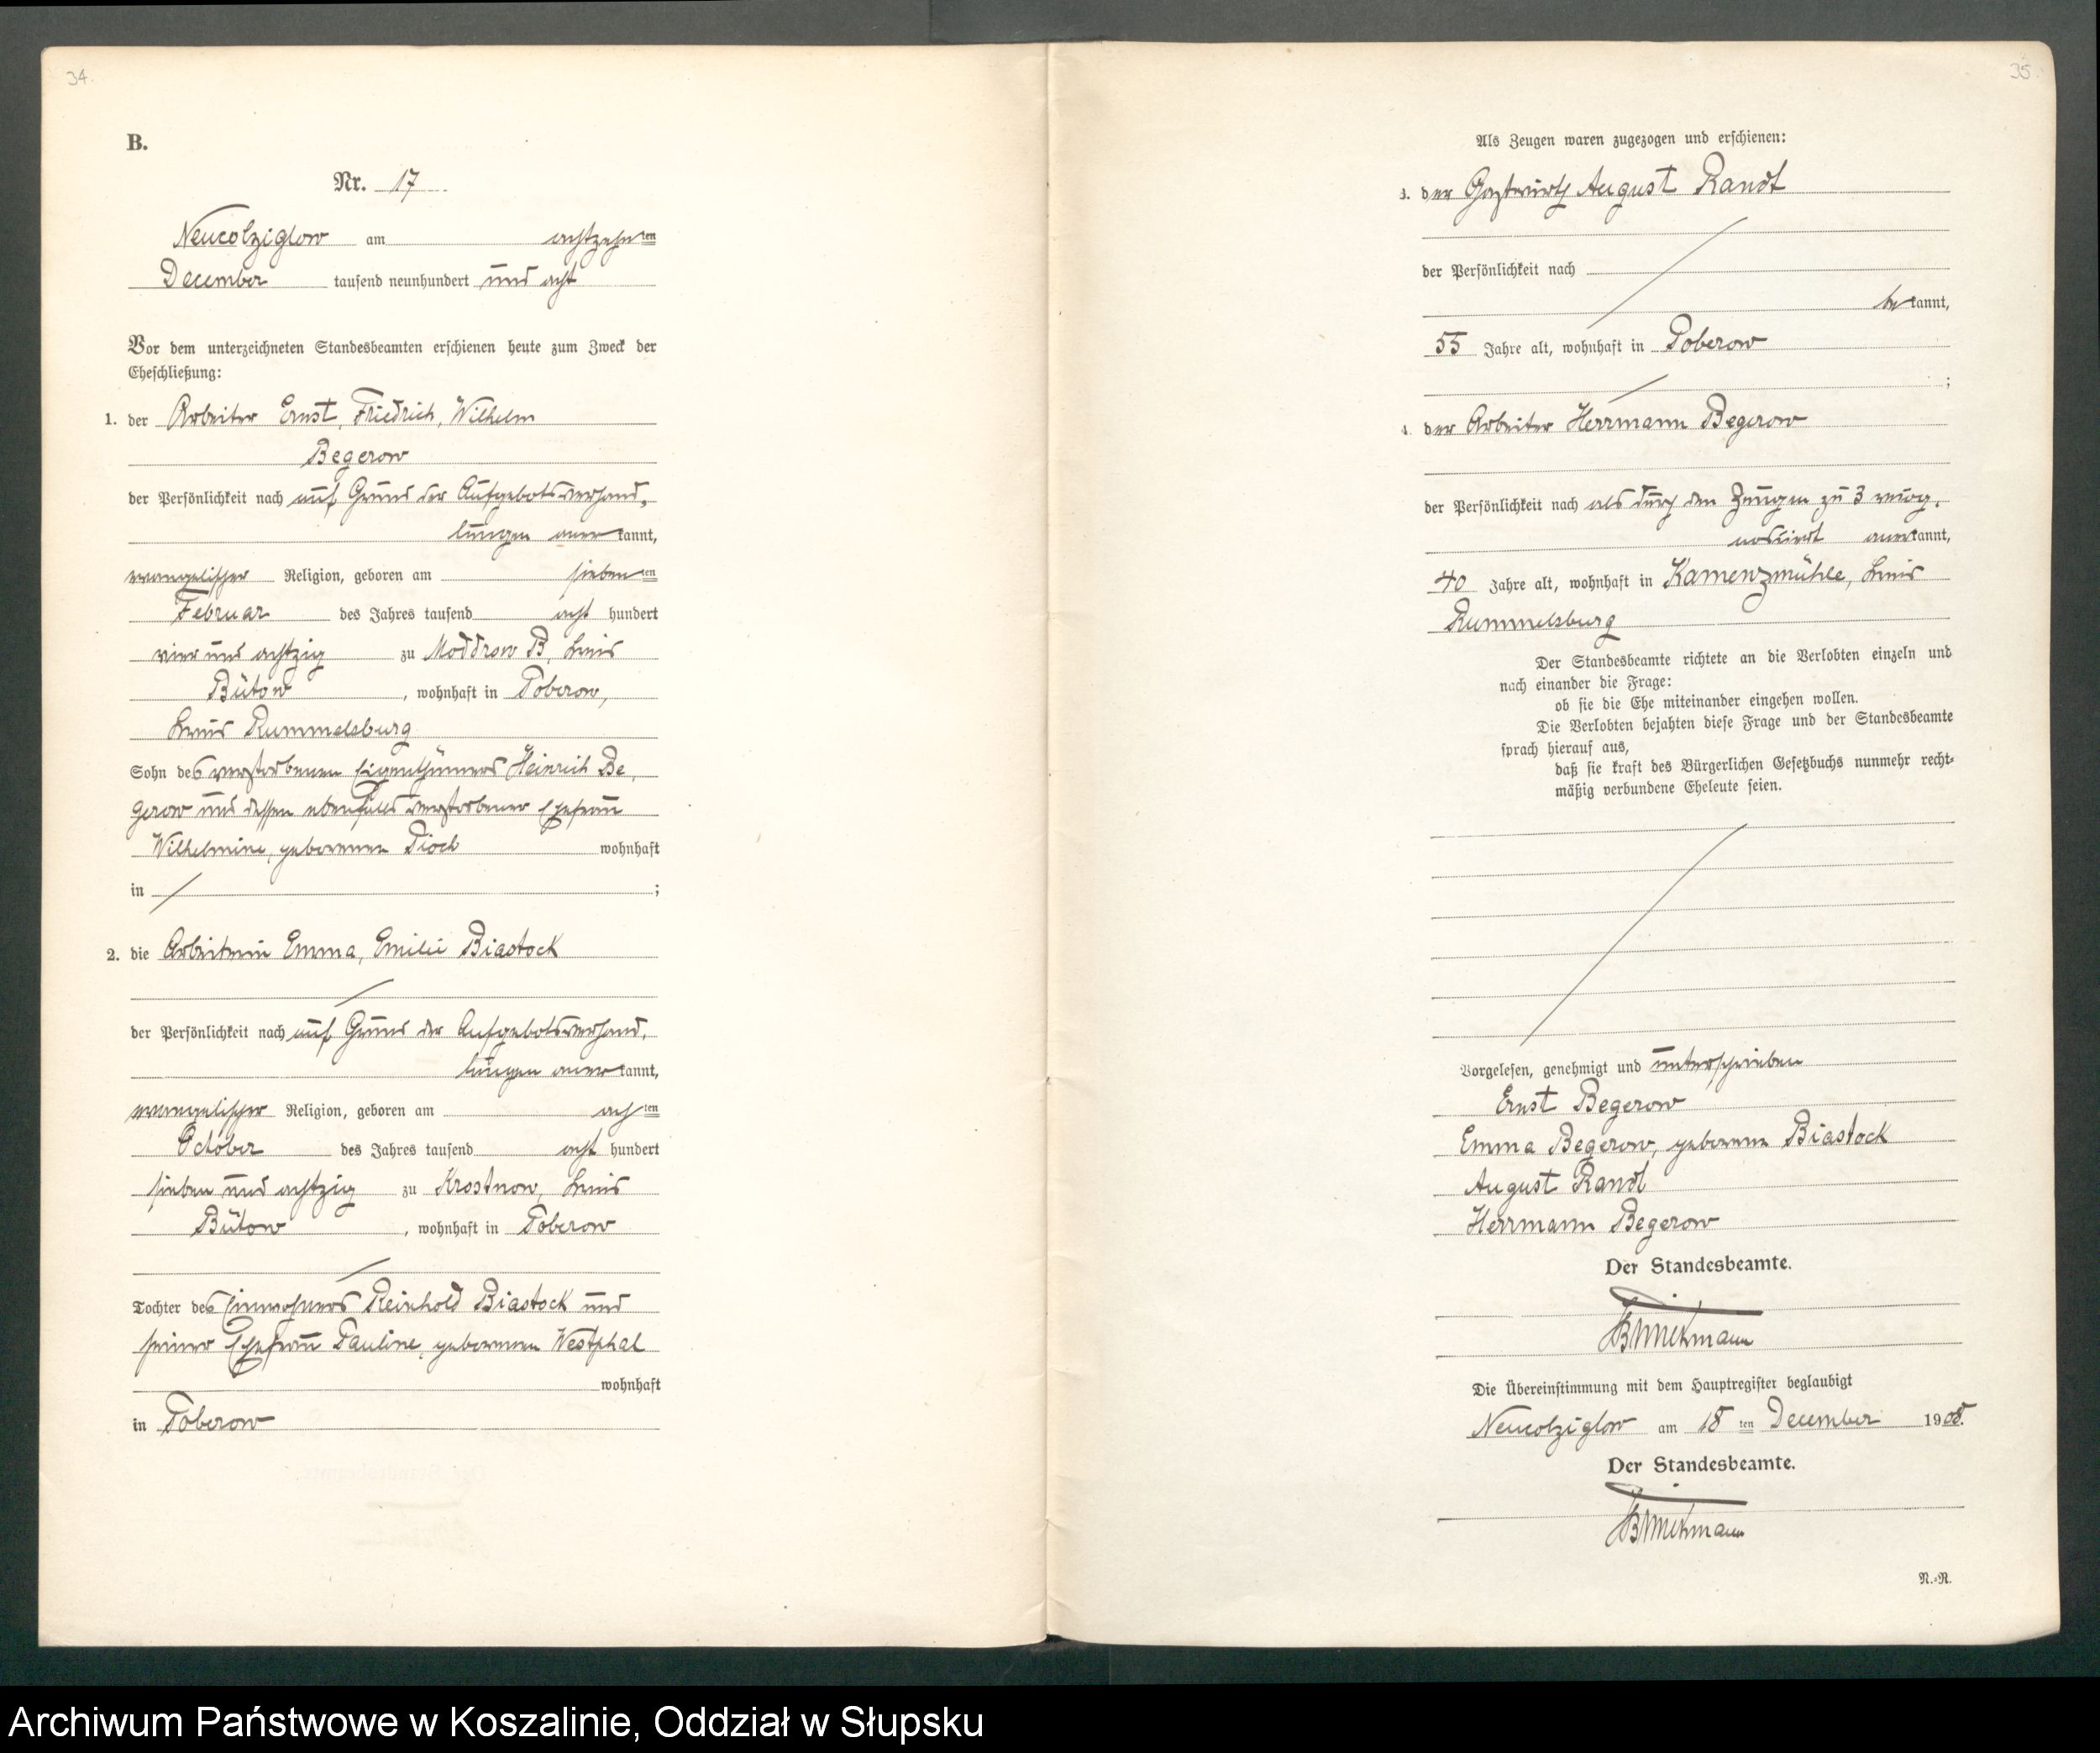 34.
B.
Nr. 17
Neucolziglow am achtzehnten
December tausend neunhundert und acht
Vor dem unterzeichneten Standesbeamten erschienen heute zum Zweck der
Eheschließung:
1. der Arbeiter Ernst, Friedrich, Wilhelm
Begerow
der Persönlichkeit nach auf Grund der Aufgebotsverhand,
lungen anerkannt,
evangelischer Religion, geboren am siebenten
Februar des Jahres tausend acht hundert
vier und achtzig zu Moddrow B, Kreis
Bütow, wohnhaft in Poberow,
Kreis Rummelsburg
Sohn des verstorbenen Eigenthümers Heinrich Be,
gerow und dessen ebenfalls verstorbener Ehefrau
Wilhelmine, geborenen Pioch wohnhaft
in /;
2. die Arbeiterin Emma, Emilie Biastock
der Persönlichkeit nach auf Grund der Aufgebotsverhand,
lungen anerkannt,
evangelischer Religion, geboren am achten
October des Jahres tausend acht hundert
sieben und achtzig zu Krostnow, Kreis
Bütow, wohnhaft in Poberow
Tochter des Einwohners Reinhold Biastock und
seiner Ehefrau Pauline, geborenen Westphal
wohnhaft
in Poberow
35.
Als Zeugen waren zugezogen und erschienen:
3. der Gastwirth August Randt
der Persönlichkeit nach
bekannt,
55 Jahre alt, wohnhaft in Poberow
;
4. der Arbeiter Herrmann Begerow
der Persönlichkeit nach als durch den Zeugen zu 3 recog,
noscirt anerkannt,
40 Jahre alt, wohnhaft in Kamenzmühle, Kreis
Rummelsburg
Der Standesbeamte richtete an die Verlobten einzeln und
nach einander die Frage:
ob sie die Ehe miteinander eingehen wollen.
Die Verlobten bejahten diese Frage und der Standesbeamte
sprach hierauf aus,
daß sie kraft des Bürgerlichen Gesetzbuchs nunmehr recht-
mäßig verbundene Eheleute seien.
Vorgelesen, genehmigt und unterschrieben
Ernst Begerow
Emma Begerow, geborene Biastock
August Randt
Herrmann Begerow
Der Standesbeamte.
Die Übereinstimmung mit dem Hauptregister beglaubigt
Neucolziglow am 18ten December 1908.
Der Standesbeamte.
N.-R.
Archiwum Państwowe w Koszalinie, Oddział w Słupsku